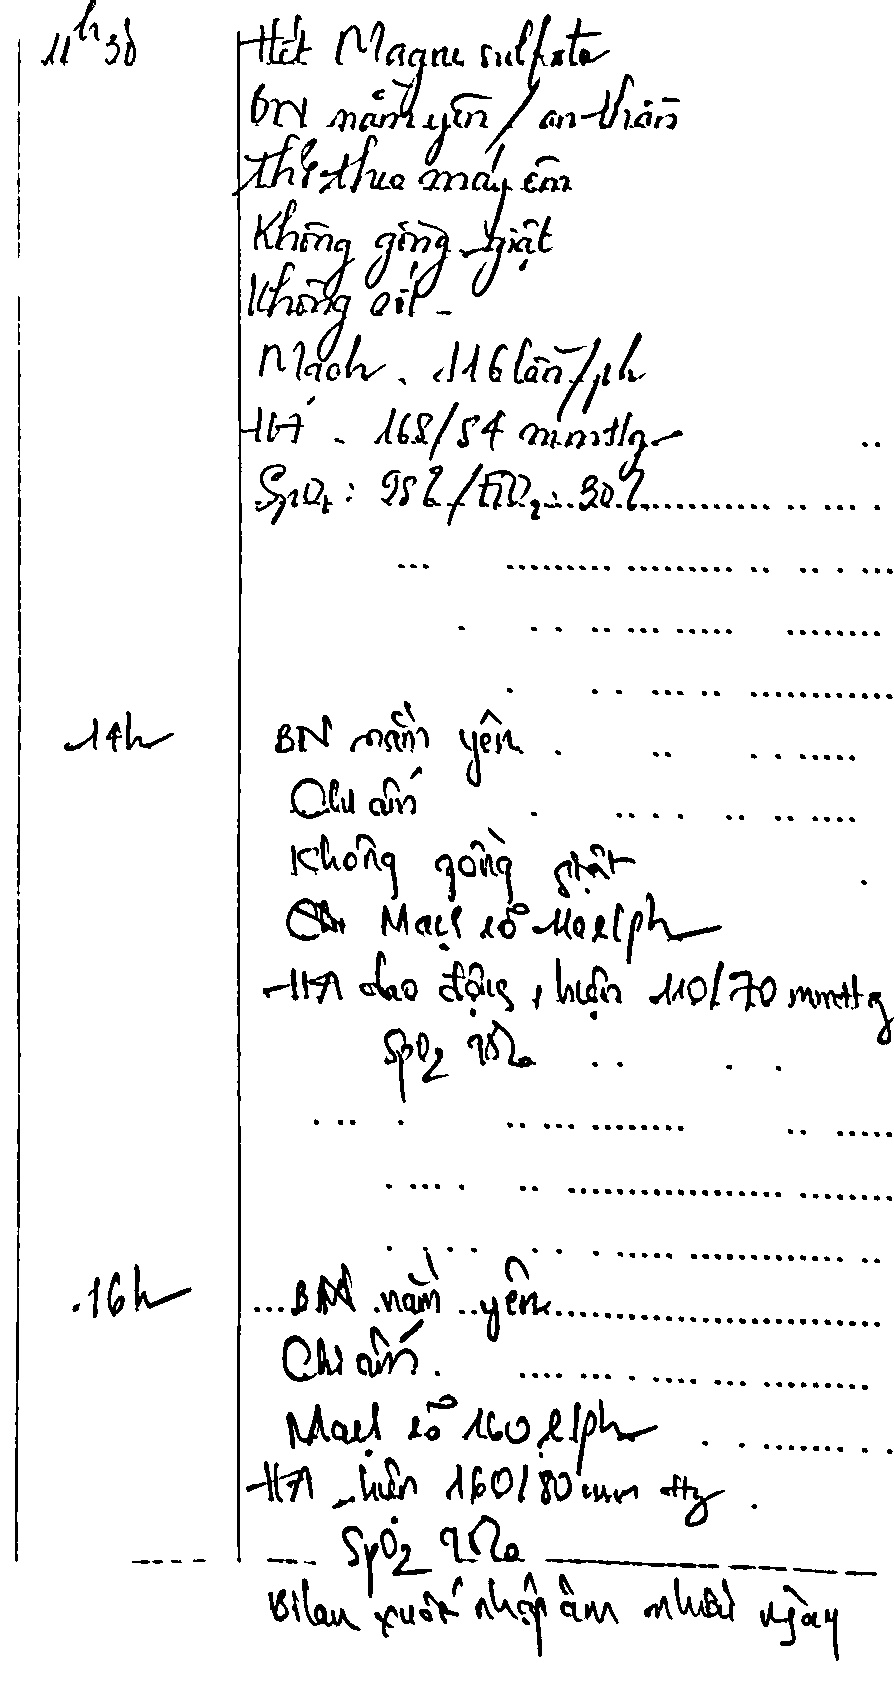 11h30
Hết Magne sulfate
BN nằm yên / an thần
thở theo máy êm
Không gồng giật
Không sốt
Mạch . 116 lần/ph
HA . 168/84 mmHg
SpO2 : 98% / FiO2 : 30%
14h
BN nằm yên
Chi ấm
Không gồng giật
Mạch rõ 110 l/ph
HA dao động, hiện 110/70 mmHg
SpO2 98%
16h
BN nằm yên
Chi ấm.
Mạch rõ 160 l/ph
HA hiện 160/80 mmHg
SpO2 98%
Bilan xuất nhập âm nhiều ngày